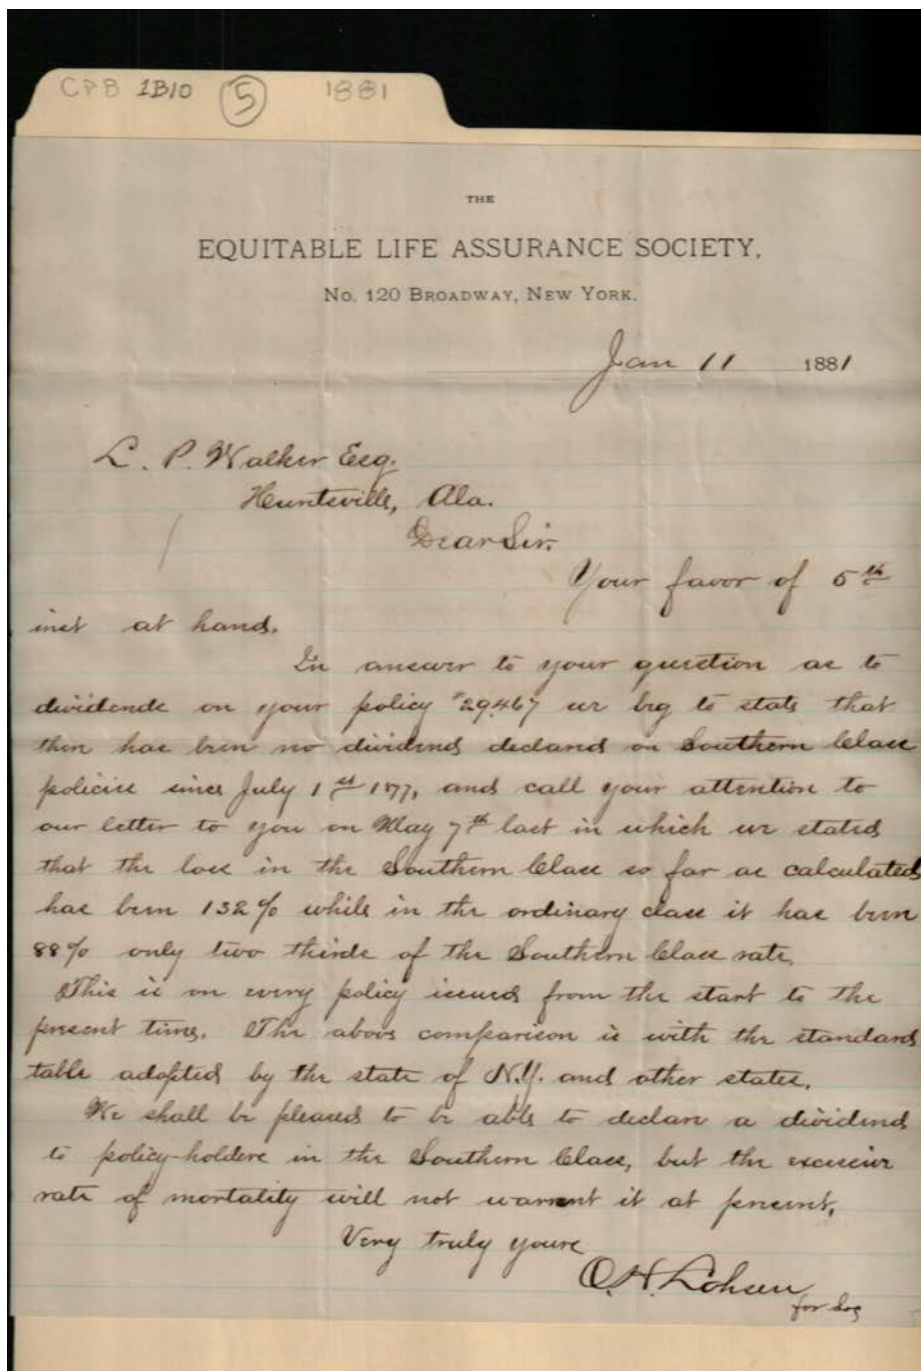 CPB 1B10 5 1881
THE
EQUITABLE LIFE ASSURANCE SOCIETY,
No. 120 BROADWAY, NEW YORK.
Jan 11 1881
L. P. Walker Esq.
Huntsville, Ala.
Dear Sir.
Your favor of 5th
inst at hand.
In answer to your question as to
dividends on your policy #29467 we beg to state that
there has been no dividend declared on Southern Class
policies since July 1st 1877, and call your attention to
our letter to you on May 7th last in which we stated
that the loss in the Southern Class so far as calculated
has been 132% while in the ordinary class it has been
88% only two thirds of the Southern Class rate.
This is on every policy issued from the start to the
present time. The above comparison is with the standard
table adopted by the state of N.Y. and other states.
We shall be pleased to be able to declare a dividend
to policy-holders in the Southern Class, but the excessive
rate of mortality will not warrant it at present.
Very truly yours
O. H.
for Sec